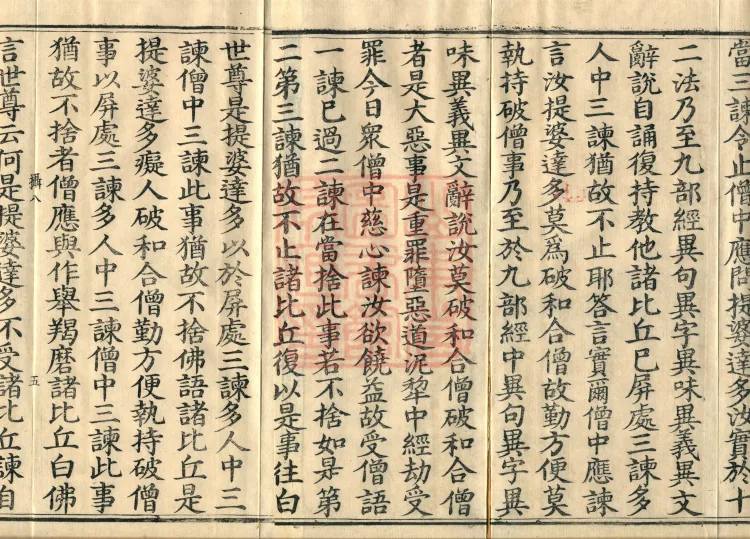 當三諫令止僧中應問提婆達多汝實於十
二法乃至九部經異句異字異味異義異文
辭說自誦復持教他諸比丘已屏處三諫多
人中三諫猶故不止耶答言實爾僧中應諫
言汝提婆達多莫爲破和合僧故勤方便莫
執持破僧事乃至於九部經中異句異字異
味異義異文辭說汝莫破和合僧破和合僧
者是大惡事是重罪墮惡道泥犂中經劫受
罪今日衆僧中慈心諫汝欲饒益故受僧語
一諫已過二諫在當捨此事若不捨如是第
二第三諫猶故不止諸比丘復以是事往白
世尊是提婆達多以於屏處三諫多人中三
諫僧中三諫此事猶故不捨佛語諸比丘是
提婆達多癡人破和合僧勤方便執持破僧
事以屏處三諫多人中三諫僧中三諫此事
猶故不捨者僧應與作舉羯磨諸比丘白佛
攝八 五
言世尊云何是提婆達多不受諸比丘諫自